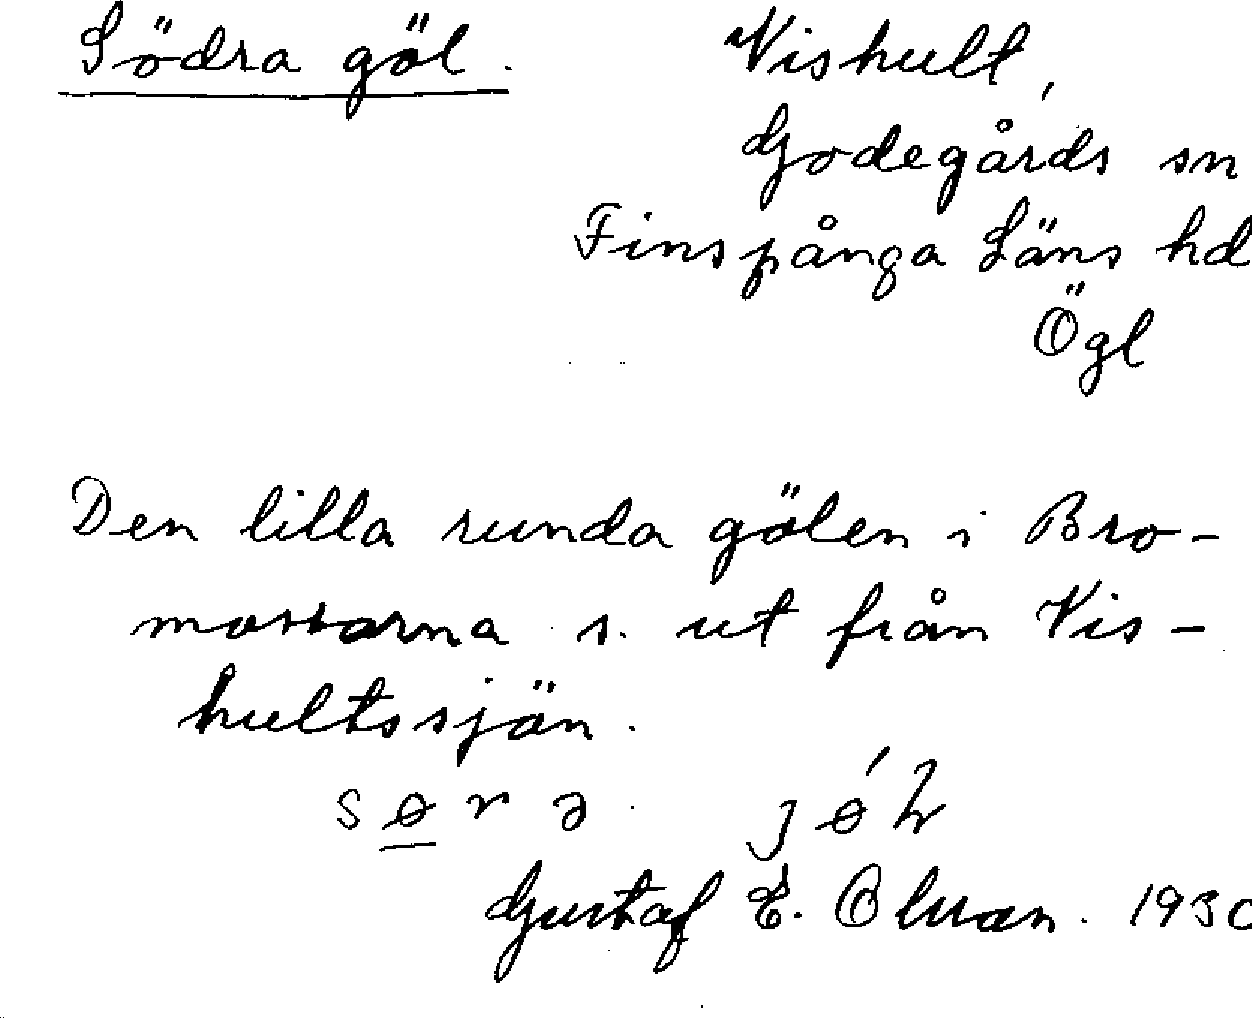 Södra göl.
Vishult,
Godegårds sn
Finspånga Läns hd
Ögl
Den lilla runda gölen i Bro-
mossarna s. ut från Vis-
hultssjön.
søra jǿ
Gustaf E. Olsson. 1930